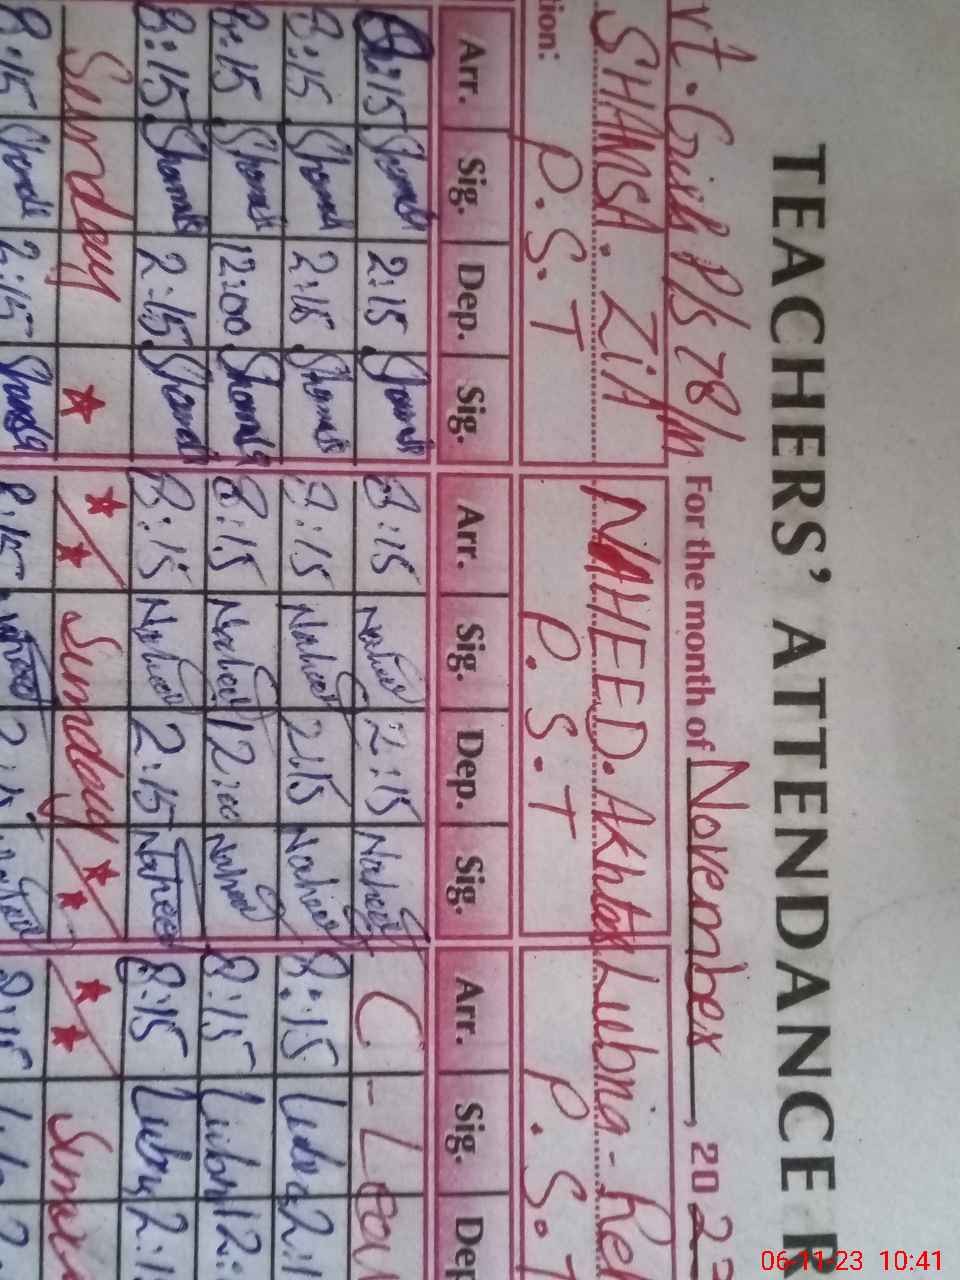 TEACHERS' ATTENDANCE R
vt. Girls P/s 78/m For the month of November, 202
SHAMSA. ZIA NAHEED. Akhtar Lubna-Reh
tion: P.S.T P.S.T P.S.T
Arr. Sig. Dep. Sig. Arr. Sig. Dep. Sig. Arr. Sig. Dep
8:15 Shamsa 2:15 Shamsa 8:15 Naheed 2:15 Naheed C-Lea
8:15 Shamsa 2:15 Shamsa 8:15 Naheed 2:15 Naheed 8:15 Lubna 2:1
8:15 Shamsa 12:00 Shamsa 8:15 Naheed 12:00 Naheed 8:15 Lubna 12:
8:15 Shamsa 2:15 Shamsa 8:15 Naheed 2:15 Naheed 8:15 Lubna 2:1
Sunday Sunday Sun
8:15 Shamsa 2:15 Shamsa 8:15 Naheed 2:15 Naheed 8:15
06-11-23 10:41